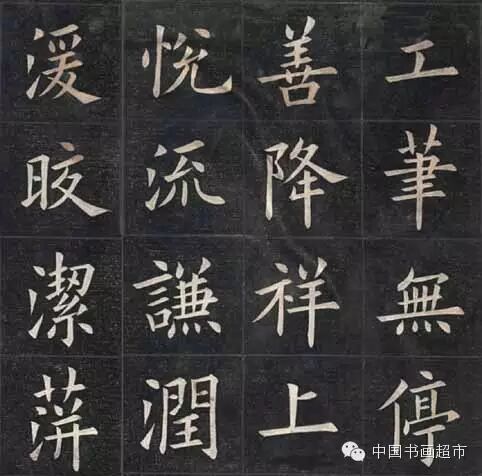 工筆無停
善降祥上
悅流謙潤
湲晈潔荓
中国书画超市